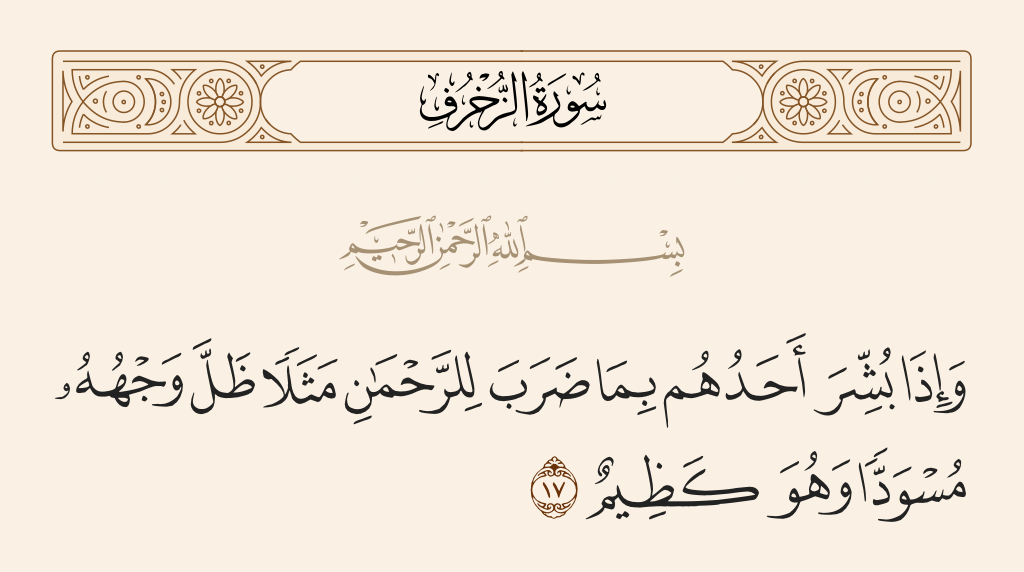 سُورَةُ الزُّخْرُفِ
بِسْمِ ٱللَّهِ ٱلرَّحْمَٰنِ ٱلرَّحِيمِ
وَإِذَا بُشِّرَ أَحَدُهُم بِمَا ضَرَبَ لِلرَّحْمَٰنِ مَثَلًا ظَلَّ وَجْهُهُۥ
مُسْوَدًّا وَهُوَ كَظِيمٌ ١٧